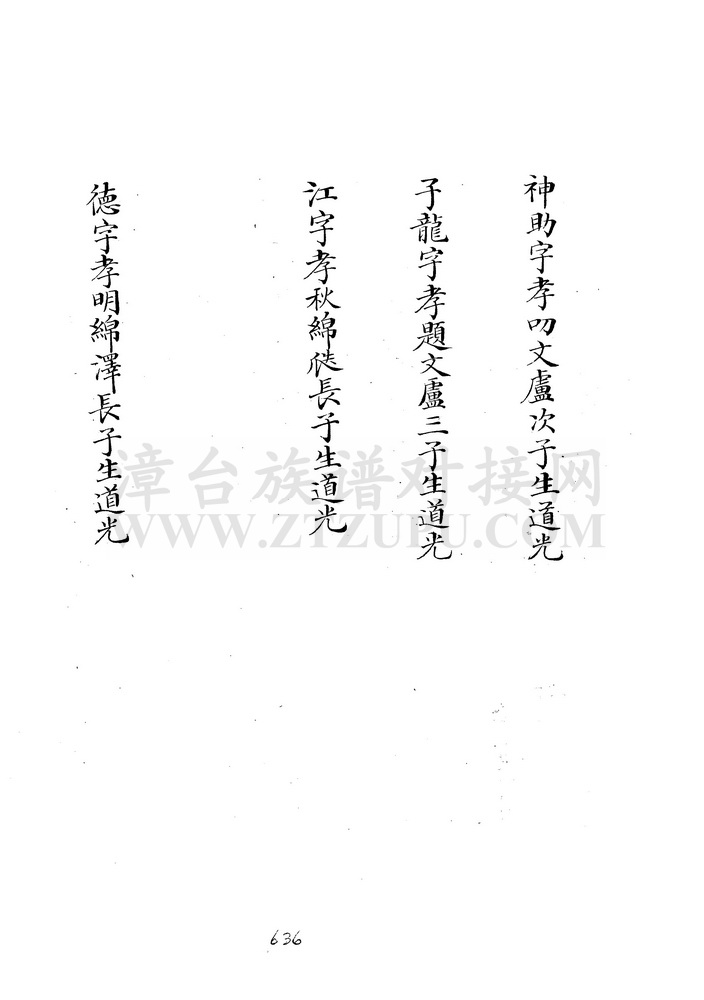 神助字孝叨文盧次子生道光
子龍字孝題文盧三子生道光
江字孝秋綿長子生道光
德字孝明綿澤長子生道光
漳台族谱对接网
WWW.ZTZUPU.COM
636